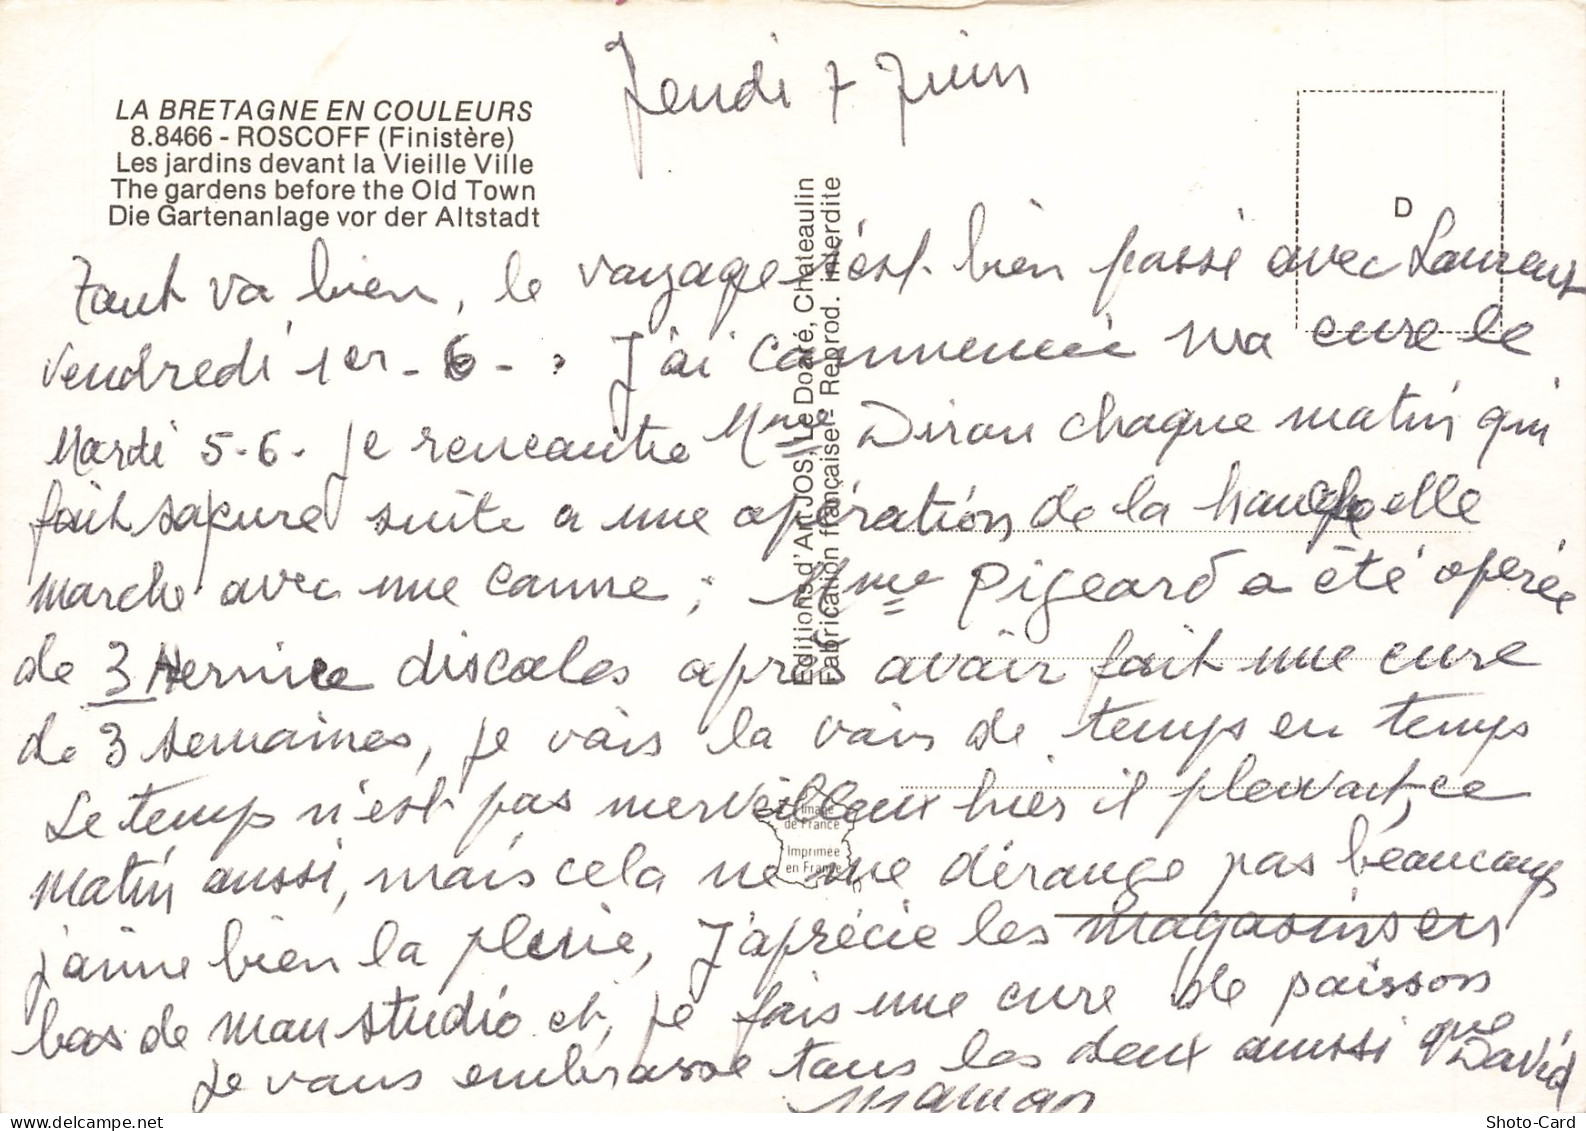 Jeudi 7 Juin
LA BRETAGNE EN COULEURS
8.8466 - ROSCOFF (Finistère)
Les jardins devant la Vieille Ville
The gardens before the Old Town
Die Gartenanlage vor der Altstadt
D
Editions d'Art JOS, Le Doaré, Chateaulin
Fabrication française - Reprod. interdite
Tout va bien, le voyage s'est bien passé avec Laurent
Vendredi 1er - 6 - . J'ai commencé ma cure le
Mardi 5-6. je rencontre Mme Dirou chaque matin qui
fait sa cure suite a une opération de la hanche elle
marche avec une canne ; Mme Pigeard a été opérée
de 3 Hernie discales après avoir fait une cure
de 3 semaines, je vais la voir de temps en temps
Le temps n'est pas merveilleux hier il pleuvait, ce
matin aussi, mais cela ne me dérange pas beaucoup
j'aime bien la pluie, J'aprécie les magasins en
bas de mon studio et, je fais une cure de poisson
Je vous embrasse tous les deux aussi que David
Maman
Image
de France
Imprimée
en France
Shoto-Card